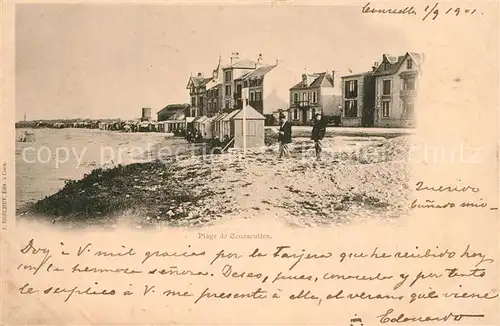 Courseulles 1/9 1901
copyright delcampe.net
Plage de Courseulles.
J. BRECHET, Edit. à Caen.
Querido
cuñado mio-
Doy á V. mil gracias por la tarjeta que he recibido hoy
con su hermosa señora. Deseo, pues, conocerla y por tanto
le suplico á V. me presente á ella, el verano que viene
Edouardo